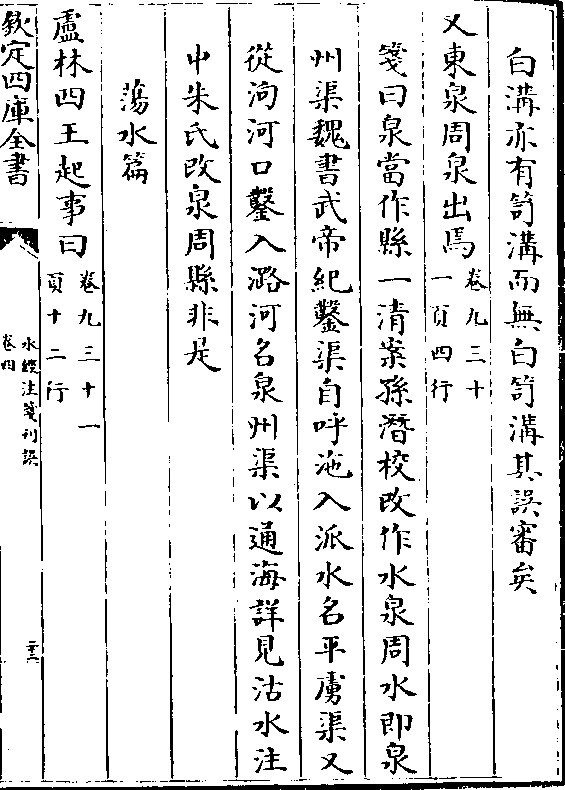 白溝亦有笥溝而無白笥溝其誤審矣
又東泉周泉出焉卷九三十一頁四行
箋曰泉當作縣一清案孫潛校改作水泉周水即泉
州渠魏書武帝紀鑿渠自呼沲入派水名平虜渠又
從泃河口鑿入潞河名泉州渠以通海詳見沽水注
中朱氏改泉周縣非是
蕩水篇
盧林四王起事曰卷九三十一頁十二行
欽定四庫全書
水經注箋刊誤
卷四
二十三